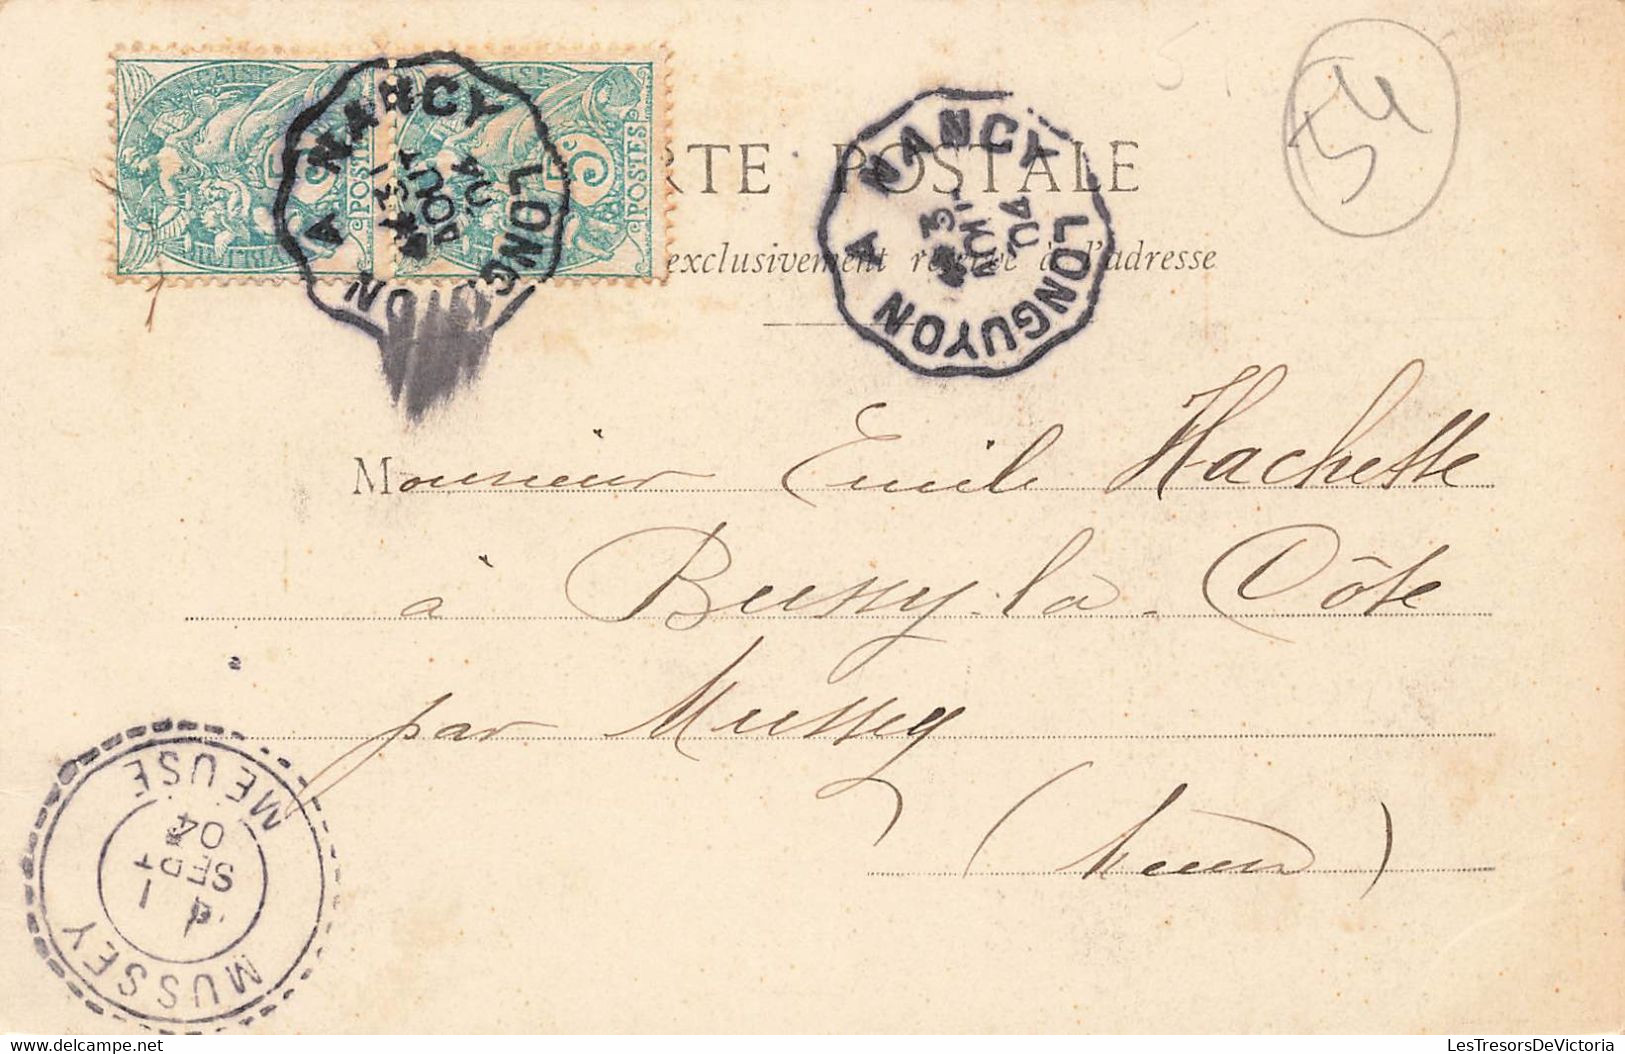 54
RTE POSTALE
exclusivement réservé à l'adresse
5
POSTES
5
POSTES
LONGUYON A NANCY
31
AOUT
04
LONGUYON A NANCY
31
AOUT
04
Monsieur Emile Hachette
à Bussy-la-Côte
par Mussey
(Meuse)
MUSSEY
1
SEPT
04
MEUSE
LesTresorsDeVictoria